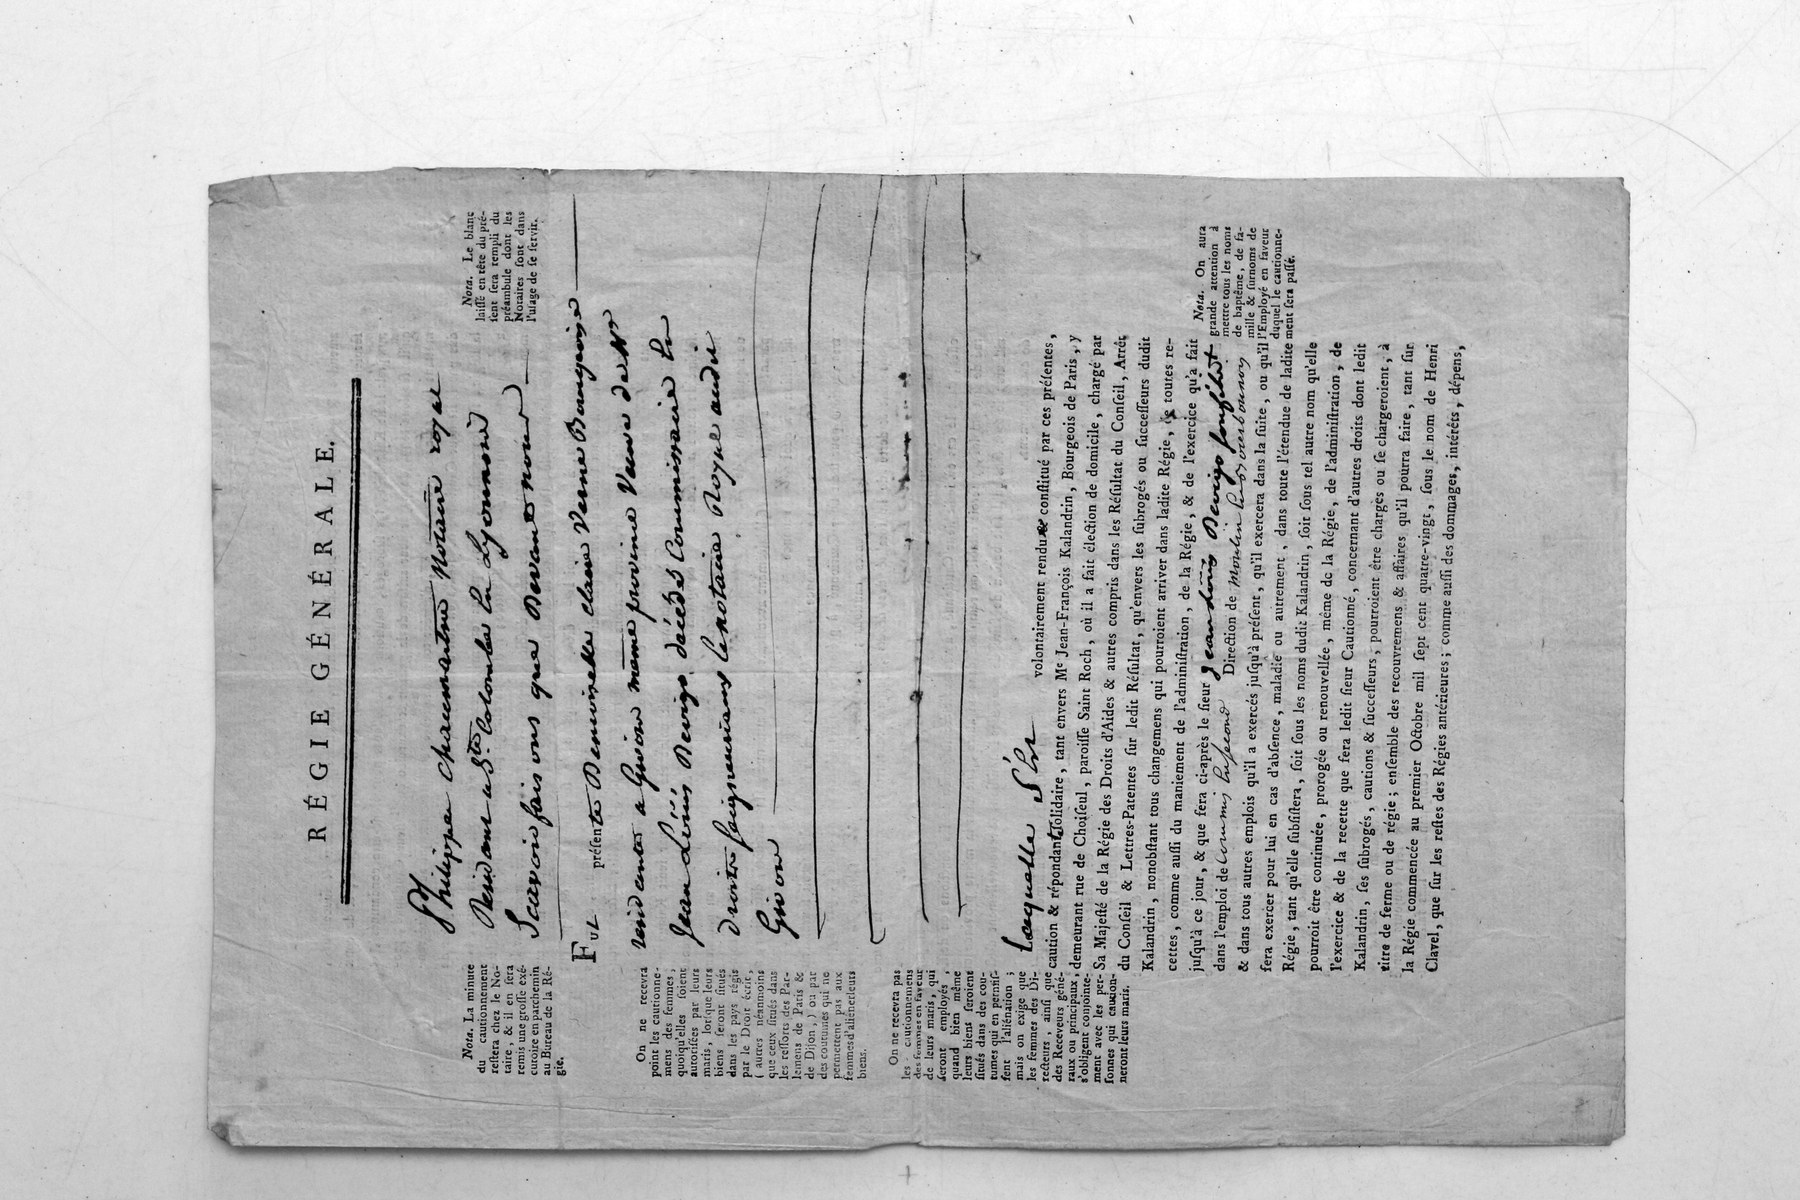 RÉGIE GÉNÉRALE.
Nota. La minute
du cautionnement
reſtera chez le No-
taire, & il en ſera
remis une groſſe exé-
cutoire en parchemin
au Bureau de la Ré-
gie.
Nota. Le blanc
laiſſé en tête du pré-
ſent ſera rempli du
préambule dont les
Notaires ſont dans
l'uſage de ſe ſervir.
Philippe Chaumartin Notaire royal
Residant a Ste. Colombe en Lyonnois
Scavoir fais vous que Devant nous
FUT préſente Demoiselle claire Verne Bourgeoise
residente a Givors meme province Veuve de Mr
Jean Denis Dervigo décédé Commissaire En
Droits seigneuriaux lenotaire Royal audit
Givors
On ne recevra
point les cautionne-
mens des femmes,
quoiqu'elles ſoient
autoriſées par leurs
maris, lorſque leurs
biens ſeront ſitués
dans les pays régis
par le Droit écrit,
( autres néanmoins
que ceux ſitués dans
les reſſorts des Par-
lemens de Paris &
de Dijon, ) ou par
des coutumes qui ne
permettent pas aux
femmes d'aliéner leurs
biens.
On ne recevra pas
les cautionnemens
des femmes en faveur
de leurs maris, qui
ſeront employés,
quand bien même
leurs biens ſeroient
ſitués dans des cou-
tumes qui en permiſ-
ſent l'aliénation;
mais on exige que
les femmes des Di-
recteurs, ainſi que
des Receveurs géné-
raux ou principaux,
s'obligent conjointe-
ment avec les per-
ſonnes qui caution-
neront leurs maris.
Laquelle S'est volontairement rendue conſtitué par ces préſentes,
caution & répondante ſolidaire, tant envers Me Jean-François Kalandrin, Bourgeois de Paris, y
demeurant rue de Choiſeul, paroiſſe Saint Roch, où il a fait élection de domicile, chargé par
Sa Majeſté de la Régie des Droits d'Aides & autres compris dans les Réſultat du Conſeil, Arrêt
du Conſeil & Lettres-Patentes ſur ledit Réſultat, qu'envers les ſubrogés ou ſucceſſeurs dudit
Kalandrin, nonobſtant tous changemens qui pourroient arriver dans ladite Régie, de toutes re-
cettes, comme auſſi du maniement de l'adminiſtration, de la Régie, & de l'exercice qu'a fait
juſqu'à ce jour, & que ſera ci-après le ſieur Jean Denis Dervigo son fils
dans l'emploi de Commis Direction de Moulin
& dans tous autres emplois qu'il a exercés juſqu'à préſent, qu'il exercera dans la ſuite, ou qu'il
fera exercer pour lui en cas d'abſence, maladie ou autrement, dans toute l'étendue de ladite
Régie, tant qu'elle ſubſiſtera, ſoit ſous les noms dudit Kalandrin, ſoit ſous tel autre nom qu'elle
pourroit être continuée, prorogée ou renouvellée, même de la Régie, de l'adminiſtration, de
l'exercice & de la recette que fera ledit ſieur Cautionné, concernant d'autres droits dont ledit
Kalandrin, ſes ſubrogés, cautions & ſucceſſeurs, pourroient être chargés ou ſe chargeroient, à
titre de ferme ou de régie; enſemble des recouvremens & affaires qu'il pourra faire, tant ſur
la Régie commencée au premier Octobre mil ſept cent quatre-vingt, ſous le nom de Henri
Clavel, que ſur les reſtes des Régies antérieures; comme auſſi des dommages, intérêts, dépens,
Nota. On aura
grande attention à
mettre tous les noms
de baptême, de fa-
mille & ſurnoms de
l'Employé en faveur
duquel le cautionne-
ment ſera paſſé.